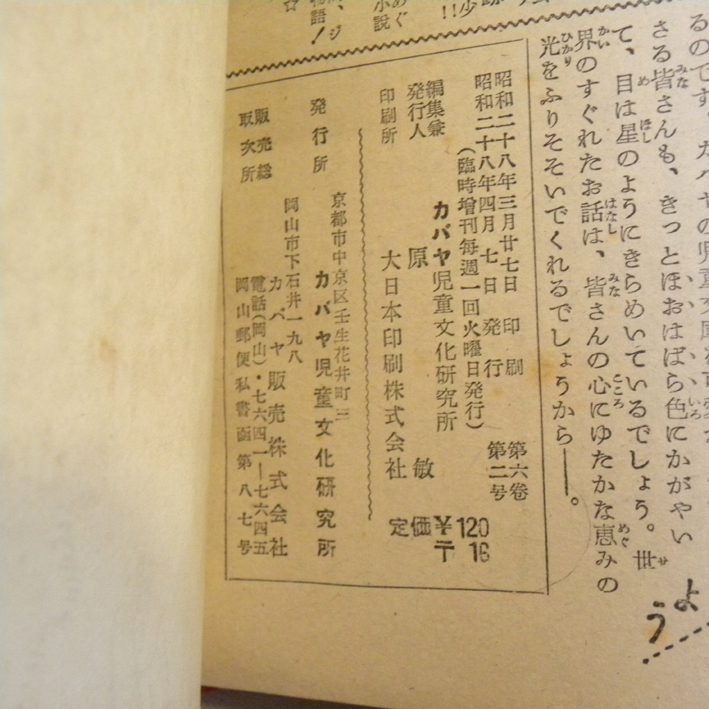 さる皆さんも、きっとほおはばら色にかがやい
て、目は星のようにきらめいているでしょう。世
界のすぐれたお話は、皆さんの心にゆたかな恵みの
光をふりそそいでくれるでしょうから――。
よう
昭和二十八年三月廿七日 印刷
昭和二十八年四月 七日 発行
第六巻
第二号
(臨時增刊每週一回火曜日発行)
カバヤ児童文化研究所
編集兼
発行人
原 敏
印刷所
大日本印刷株式会社
定価 ¥120
〒 16
発行所
京都市中京区壬生花井町三
カバヤ児童文化研究所
販売総
取次所
岡山市下石井一九八
カバヤ販売株式会社
電話(岡山)・七六四一―七六四五
岡山郵便私書函第八七号